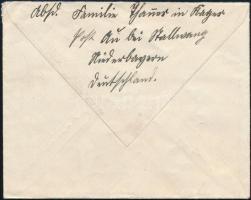 Absd. Familie Thanner in Kager
Post Au bei Stallwang
Niederbayern
Deutschland.